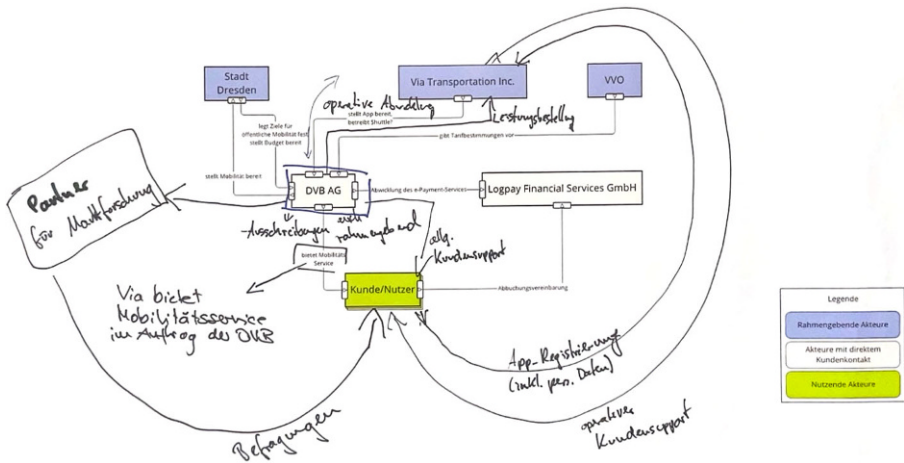 Stadt
Dresden
Via Transportation Inc.
VVO
operative Abwicklung
stellt App bereit,
betreibt Shuttle?
Leistungsbestellung
legt Ziele für
öffentliche Mobilität fest
stellt Budget bereit
gibt Tarifbestimmungen vor
stellt Mobilität bereit
DVB AG
Abwicklung des e-Payment-Services
Logpay Financial Services GmbH
Partner
für Marktforschung
Ausschreibungen
auch
rahmengebend
allg.
Kundensupport
bietet Mobilitäts
Service
Kunde/Nutzer
Abbuchungsvereinbarung
Via bietet
Mobilitätsservice
im Auftrag der DVB
App-Registrierung
(inkl. pers. Daten)
operativer
Kundensupport
Befragungen
Legende
Rahmengebende Akteure
Akteure mit direktem
Kundenkontakt
Nutzende Akteure